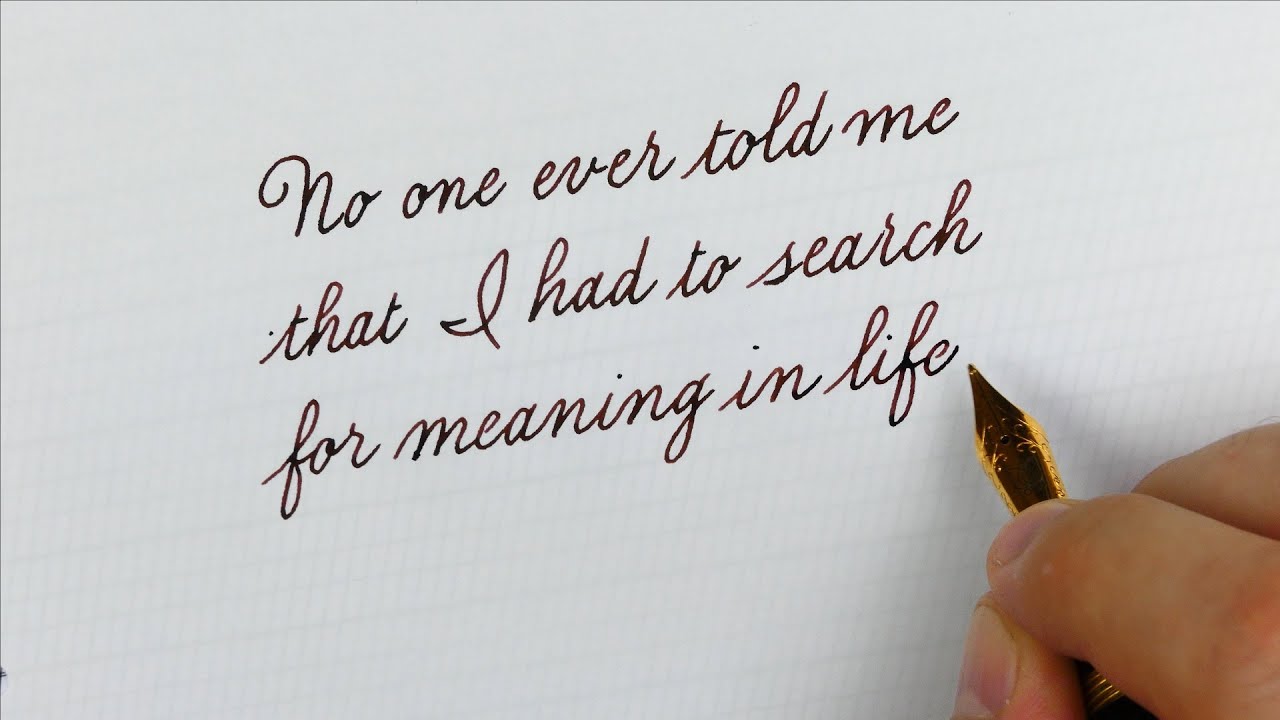 No one ever told me
that I had to search
for meaning in life